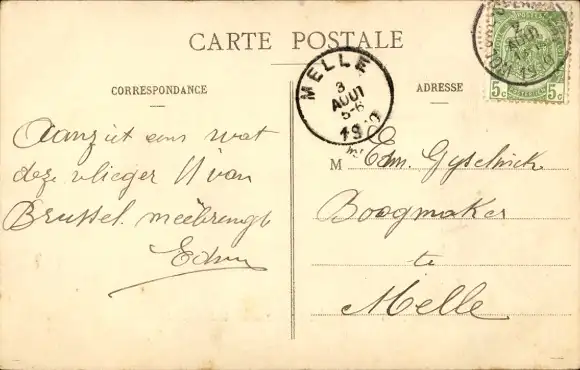 CARTE POSTALE
CORRESPONDANCE
ADRESSE
MELLE
3
AOUT
5-6
5c 5c
Aanziet eens wat
deze vlieger U van
Brussel meêbrengt
Edm
M Edm. Gyselinck
Boogmaker
te
Melle